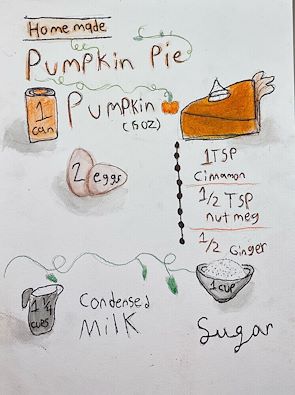 Homemade
Pumpkin Pie
1 can
Pumpkin
(15oz)
2 eggs
1 TSP
Cinnamon
1/2 TSP
nutmeg
1/2 Ginger
1 1/4
cups
Condensed
Milk
1 cup
Sugar